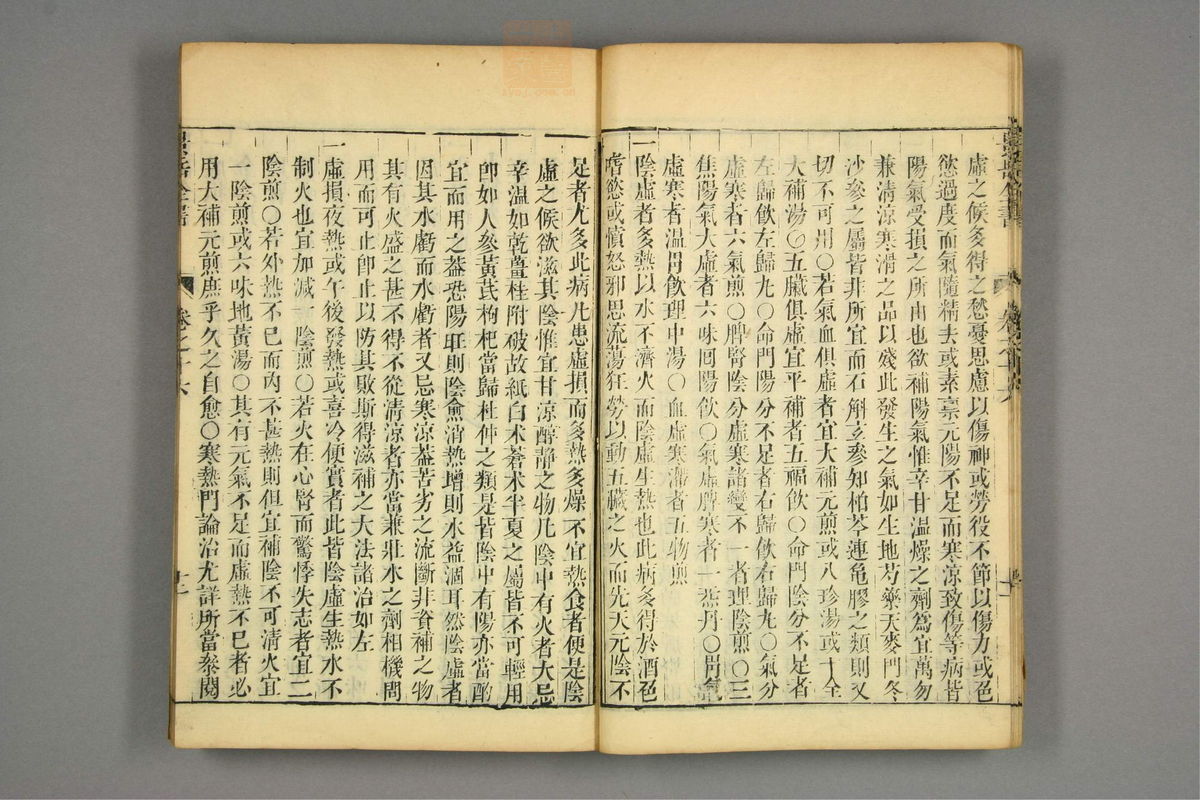 虛之候多得之愁憂思慮以傷神或勞役不節以傷力或色
慾過度而氣隨精去或素禀元陽不足而寒涼致傷等病皆
陽氣受損之所由也欲補陽氣惟辛甘溫燥之劑爲宜萬勿
兼清涼寒滑之品以殘此發生之氣如生地芍藥天麥門冬
沙參之屬皆非所宜而石斛玄參知柏芩連龜膠之類則又
切不可用○若氣血俱虛者宜大補元煎或八珍湯或十全
大補湯○五臟俱虛宜平補者五福飲○命門陰分不足者
左歸飲左歸丸○命門陽分不足者右歸飲右歸丸○氣分
虛寒者六氣煎○脾腎陰分虛寒諸變不一者理陰煎○三
焦陽氣大虛者六味回陽飲○氣虛脾寒者一炁丹○胃氣
虛寒者溫胃飲理中湯○血虛寒滯者五物煎
一陰虛者多熱以水不濟火而陰虛生熱也此病多得於酒色
嗜慾或憤怒邪思流蕩狂勞以動五臟之火而先天元陰不
足者尤多此病凡患虛損而多熱多燥不宜熱食者便是陰
虛之候欲滋其陰惟宜甘涼醇靜之物凡陰中有火者大忌
辛溫如乾薑桂附破故紙白术蒼术半夏之屬皆不可輕用
卽如人參黃芪枸杞當歸杜仲之類是皆陰中有陽亦當酌
宜而用之葢恐陽旺則陰愈消熱增則水益涸耳然陰虛者
因其水虧而水虧者又忌寒涼葢苦劣之流斷非資補之物
其有火盛之甚不得不從清涼者亦當兼壯水之劑相機間
用而可止卽止以防其敗斯得滋補之大法諸治如左
一虛損夜熱或午後發熱或喜冷便實者此皆陰虛生熱水不
制火也宜加減一陰煎○若火在心腎而驚悸失志者宜二
陰煎○若外熱不已而內不甚熱則但宜補陰不可清火宜
一陰煎或六味地黃湯○其有元氣不足而虛熱不已者必
用大補元煎庶乎久之自愈○寒熱門論治尤詳所當叅閱
全書
卷之十六
十二